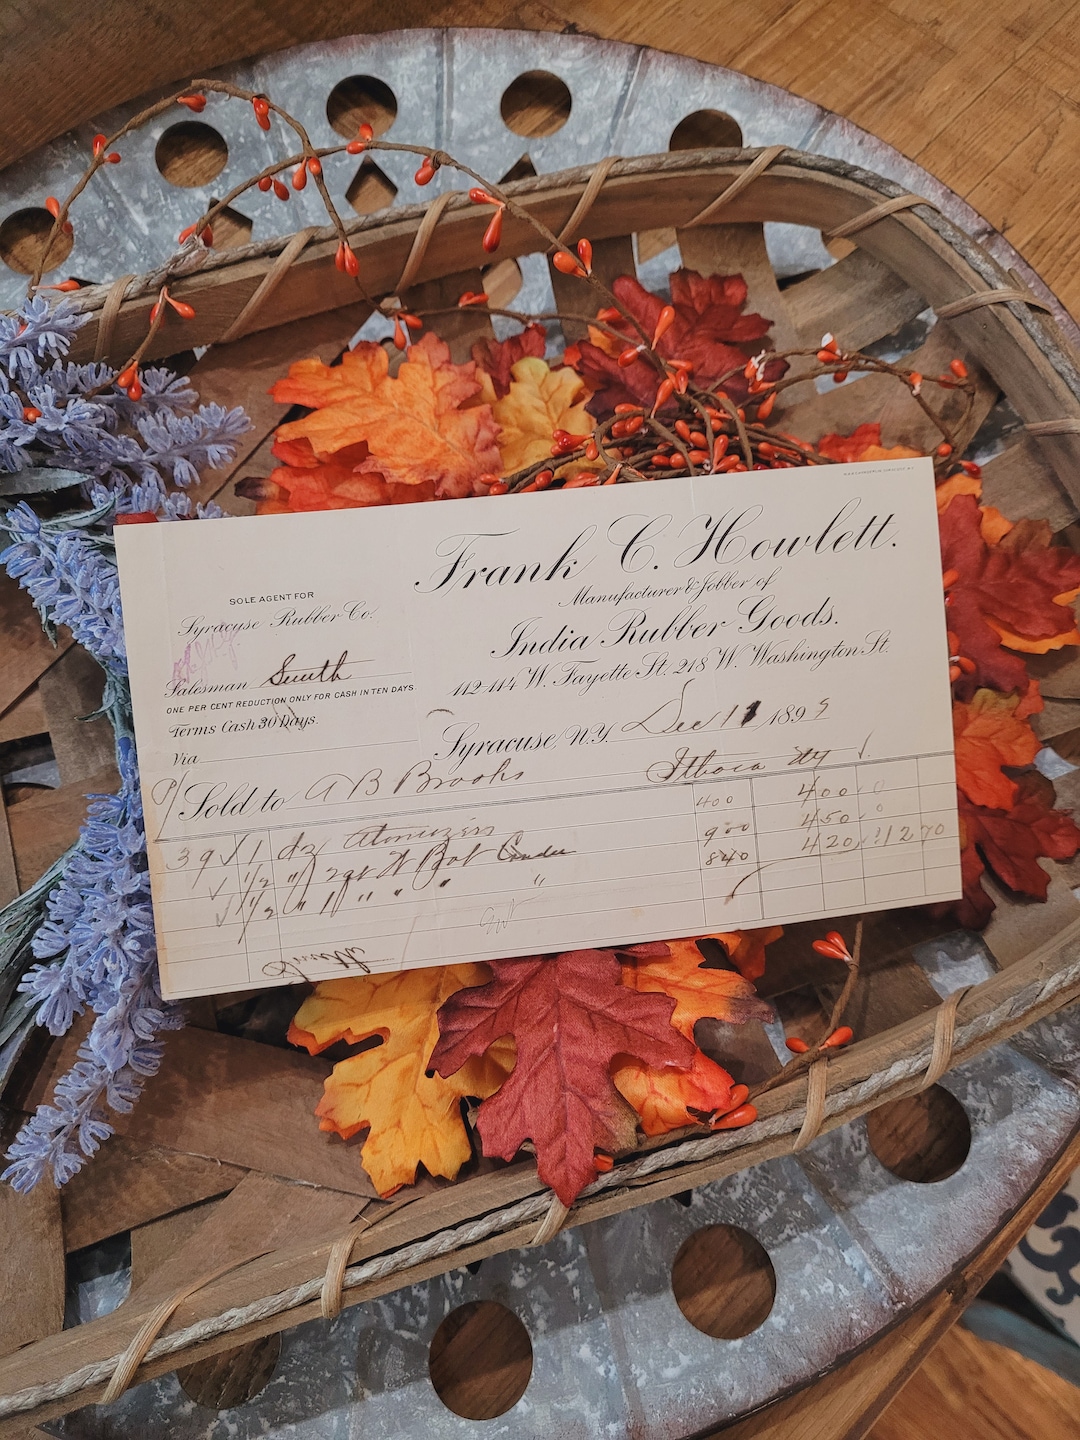 Frank C. Howlett.
Manufacturer & Jobber of
India Rubber Goods.
112-114 W. Fayette St. 218 W. Washington St.
SOLE AGENT FOR
Syracuse Rubber Co.
Salesman Smith
ONE PER CENT REDUCTION ONLY FOR CASH IN TEN DAYS.
Terms Cash 30 Days.
Via
Syracuse, N.Y. Dec 11 1899
Sold to A B Brooks Ithaca
39 √ 1 dz Atomizers 400 400
√ 1/2 " 2qt Bot 900 450
√ 1/2 " " " " " 840 420 1270